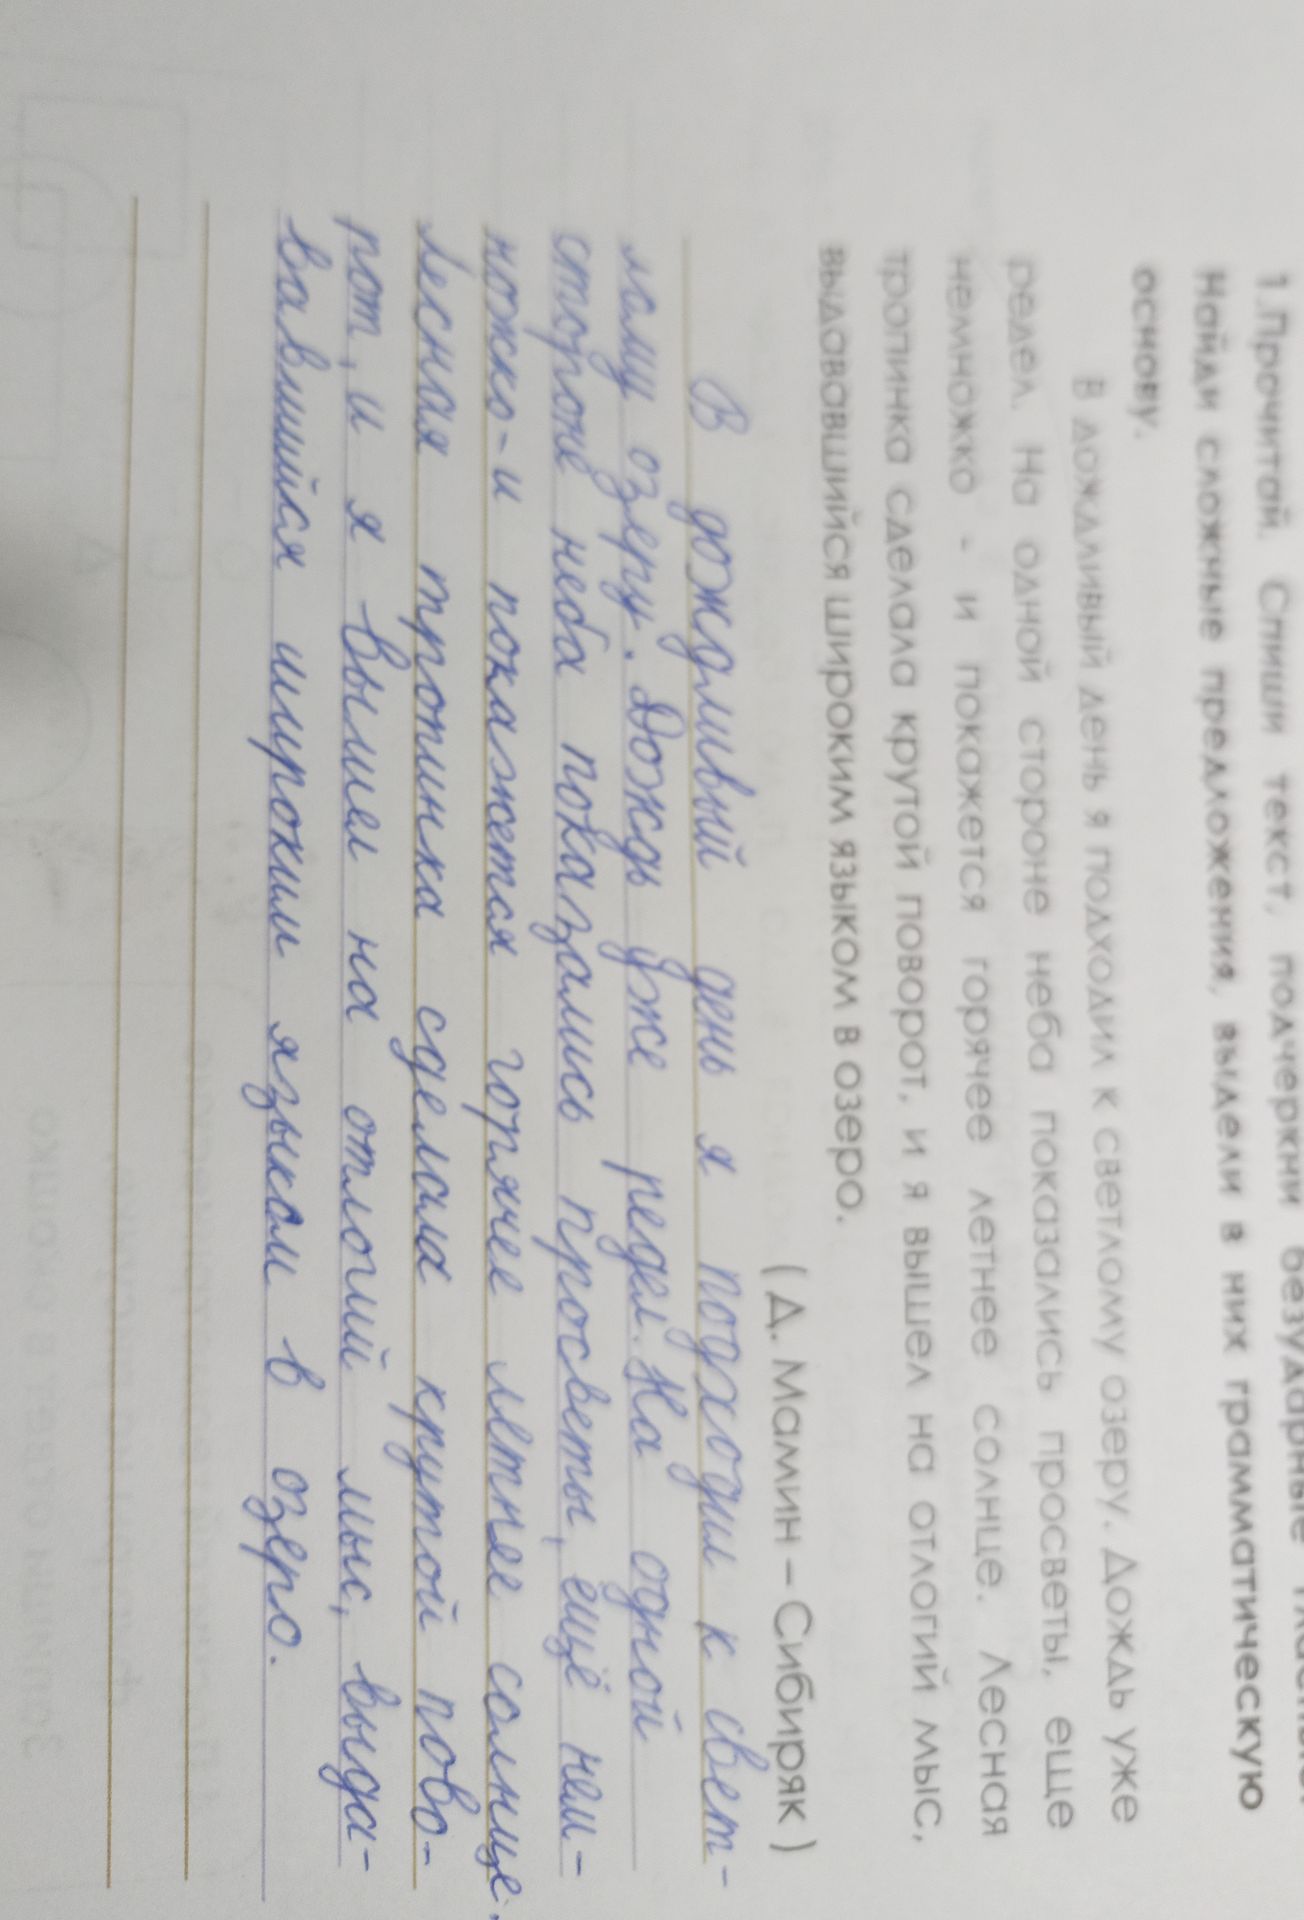 1.Прочитай. Спиши текст, подчеркни безударные гласные.
Найди сложные предложения, выдели в них грамматическую
основу.
В дождливый день я подходил к светлому озеру. Дождь уже
редел. На одной стороне неба показались просветы, еще
немножко - и покажется горячее летнее солнце. Лесная
тропинка сделала крутой поворот, и я вышел на отлогий мыс,
выдававшийся широким языком в озеро.
( Д. Мамин – Сибиряк )
В дождливый день я подходил к свет-
лому озеру. Дождь уже редел. На одной
стороне неба показались просветы, ещё нем-
ножко - и покажется горячее летнее солнце.
Лесная тропинка сделала крутой пово-
рот, и я вышел на отлогий мыс, выда-
вавшийся широким языком в озеро.